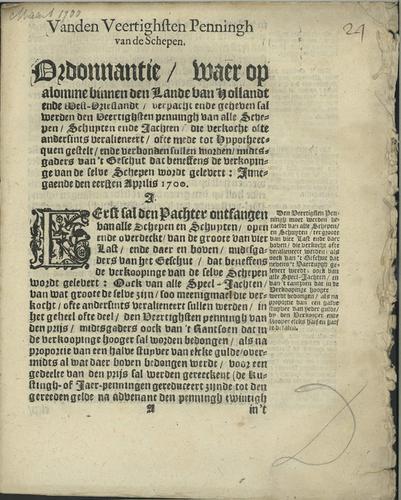 Maert 1700
24
Vanden Veertighsten Penningh
van de Schepen.
Ordonnantie / waer op
alomme binnen den Lande van Hollandt
ende West-Vrieslandt / verpacht ende geheven sal
werden den Veertighsten penningh van alle Sche-
pen / Schuyten ende Jachten / die verkocht ofte
andersints veralieneert / ofte mede tot Hypothecq-
quen gestelt / ende verbonden sullen worden / midts-
gaders van 't Geschut dat beneffens de verkopin-
ge van de selve Schepen wordt gelevert: Inne-
gaende den eersten Appilis 1700.
I.
EErst sal den Pachter ontfangen
van alle Schepen en Schuyten / open
ende overdeckt / van de groote van vier
Last / ende daer en boven / midtsga-
ders van het Geschut / dat beneffens
de verkoopinge van de selve Schepen
wordt gelevert: Oock van alle Speel-Jachten /
van wat groote de selve zijn / soo meenigmael die ver-
kocht / ofte andersints veralieneert sullen werden / in
het geheel ofte deel / den Veertighsten penningh van
den prijs / midtsgaders oock van 't Rantsoen dat in
de verkoopinge hooger sal worden bedongen / als na
proportie van een halve stuyver van elcke gulde / over-
midts al wat daer boven bedongen werdt / voor een
gedeelte van den prijs sal werden gereeckent (de Ku-
stingh- of Jaer-penningen gereduceert zijnde tot den
gereeden gelde na advenant den penningh twintigh
A
in't
Den Veertigsten Pen-
ningh moet werden be-
taelt van alle Schepen/
en Schuyten / ter groote
van vier Last ende daer
boven / die verkocht ofte
veralieneert werden: als
oock van 't Geschut dat
gelevert werdt: oock van
alle Speel-Jachten / en
van 't rantsoen dat in de
Verkoopinge hooger
werdt bedongen / als na
proportie van een halve
stuyver van yeder gulde/
by den Verkooper ende
Kooper elcks half en half
te betalen.